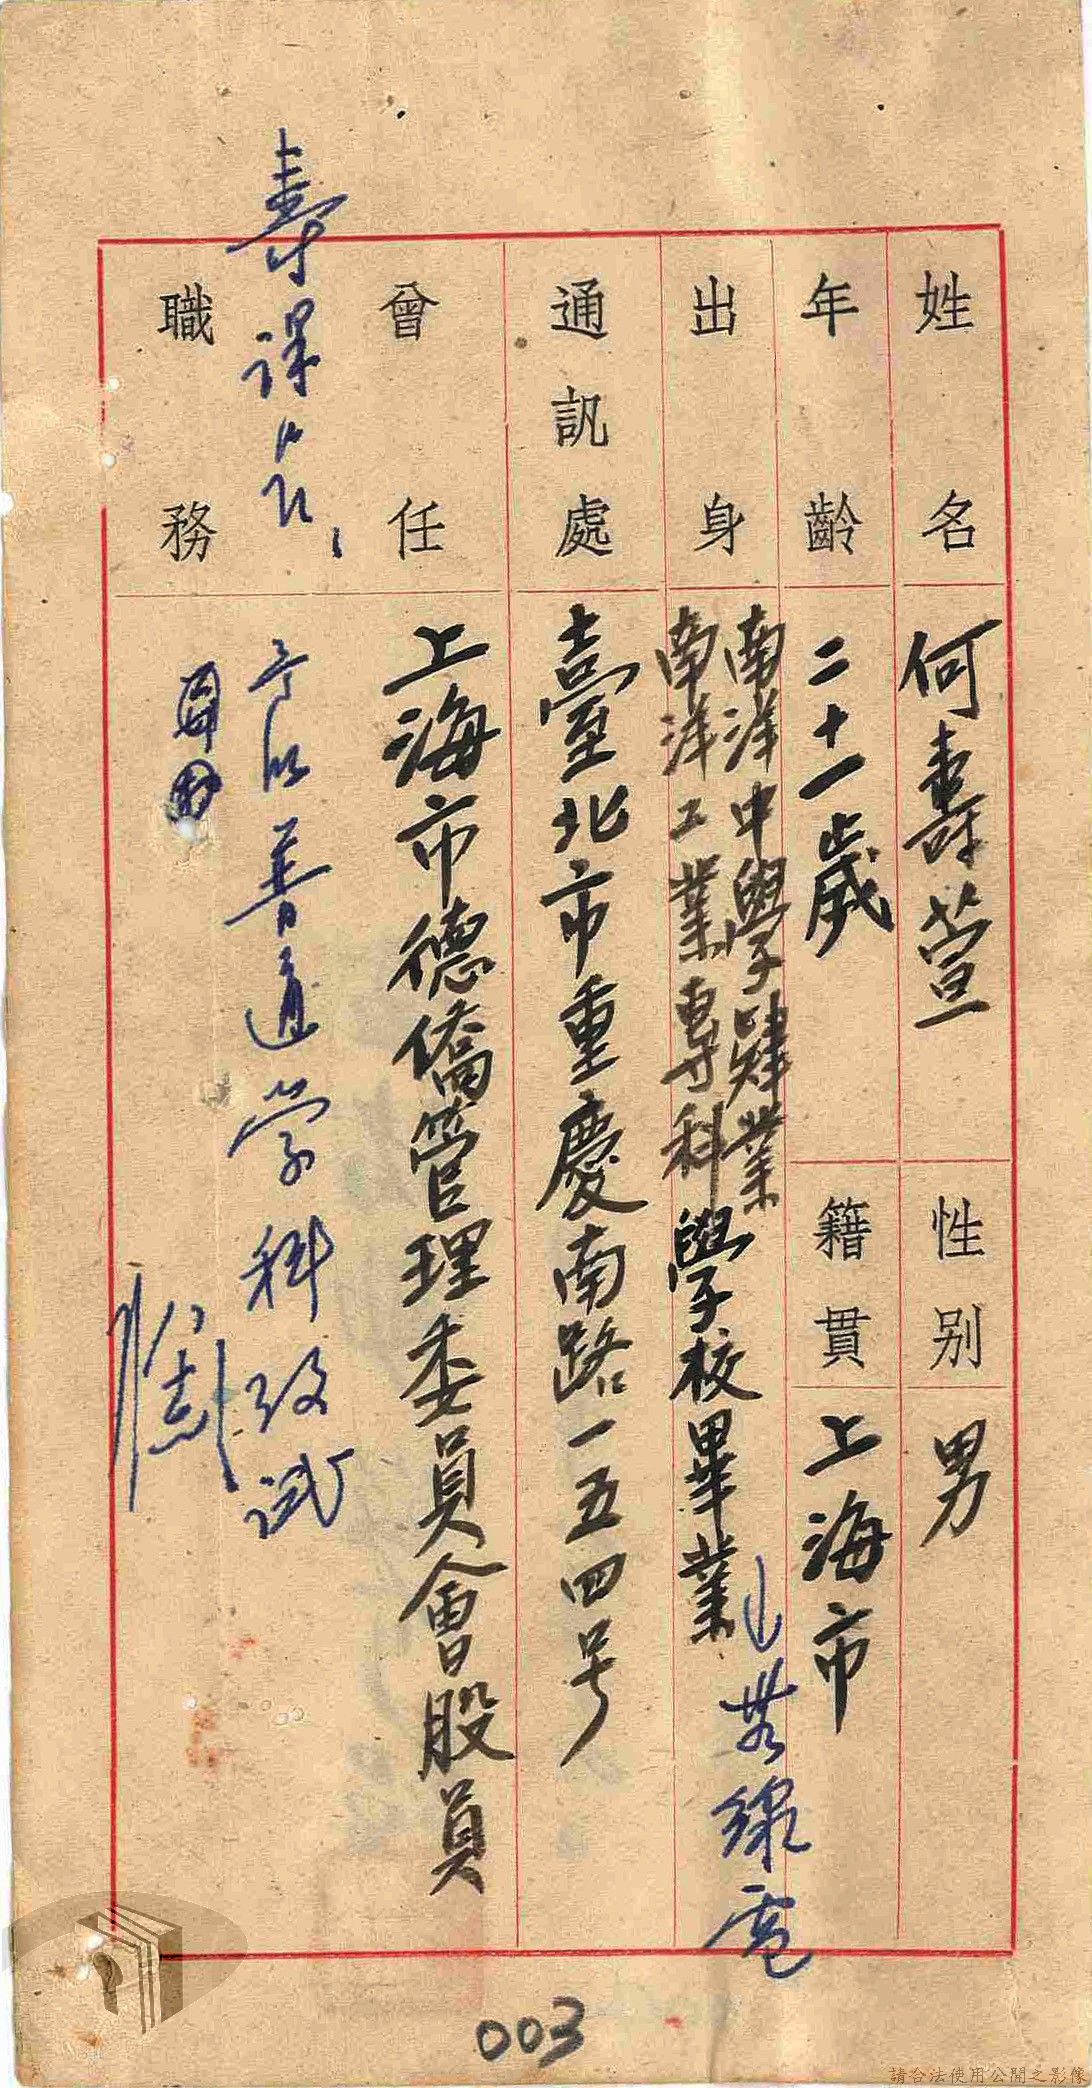 姓名 何壽萱 性別 男
年齡 二十一歲 籍貫 上海市
出身 南洋中學肄業
南洋工業專科學校畢業
無線電
通訊處 臺北市重慶南路一五四号
曾任職務 上海市德僑管理委員會股員
普通学科攷試
003
請合法使用公開之影像